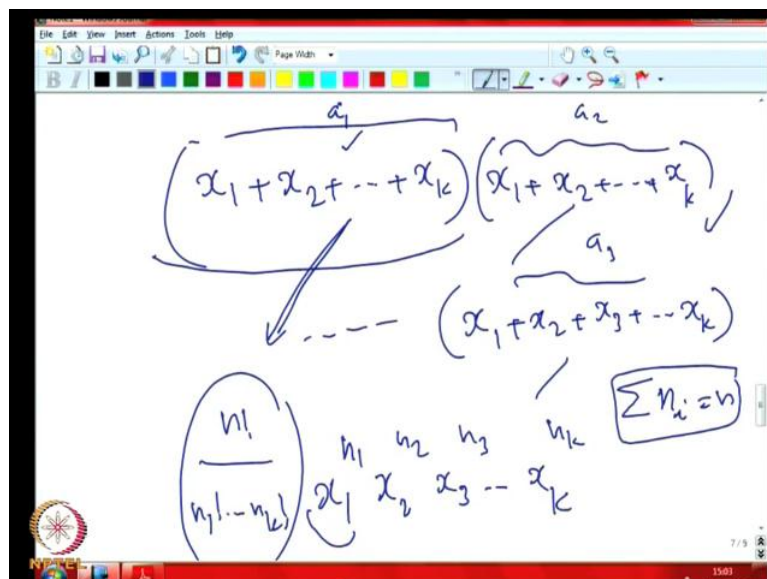 File Edit View Insert Actions Tools Help
Page Width
B I
a₁ a₂
(x₁ + x₂ + -- + x_k) (x₁ + x₂ + -- + x_k)
a₃
---- (x₁ + x₂ + x₃ + -- x_k)
∑ n_i = n
n! / n₁! -- n_k! x₁^n₁ x₂^n₂ x₃^n₃ -- x_k^n_k
7/9
NPTEL
15:03